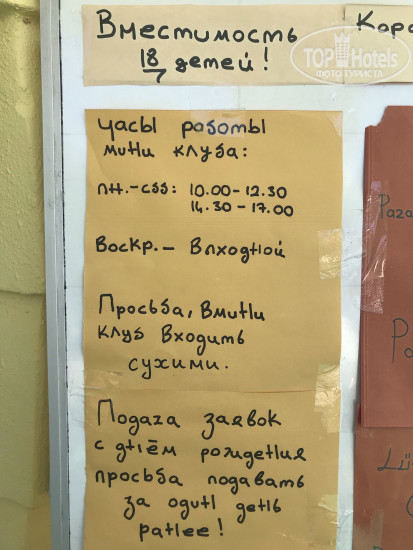 Вместимость
18/7 детей!
TOP Hotels
ФОТО ТУРИСТА
часы работы
мини клуба:
пн.-сбб: 10.00-12.30
14.30-17.00
Воскр.- Впходной
Просьба, Вмини
клуб входить
сухими.
Подача заявок
с днём рождения
просьба подавать
за один день
ранее!